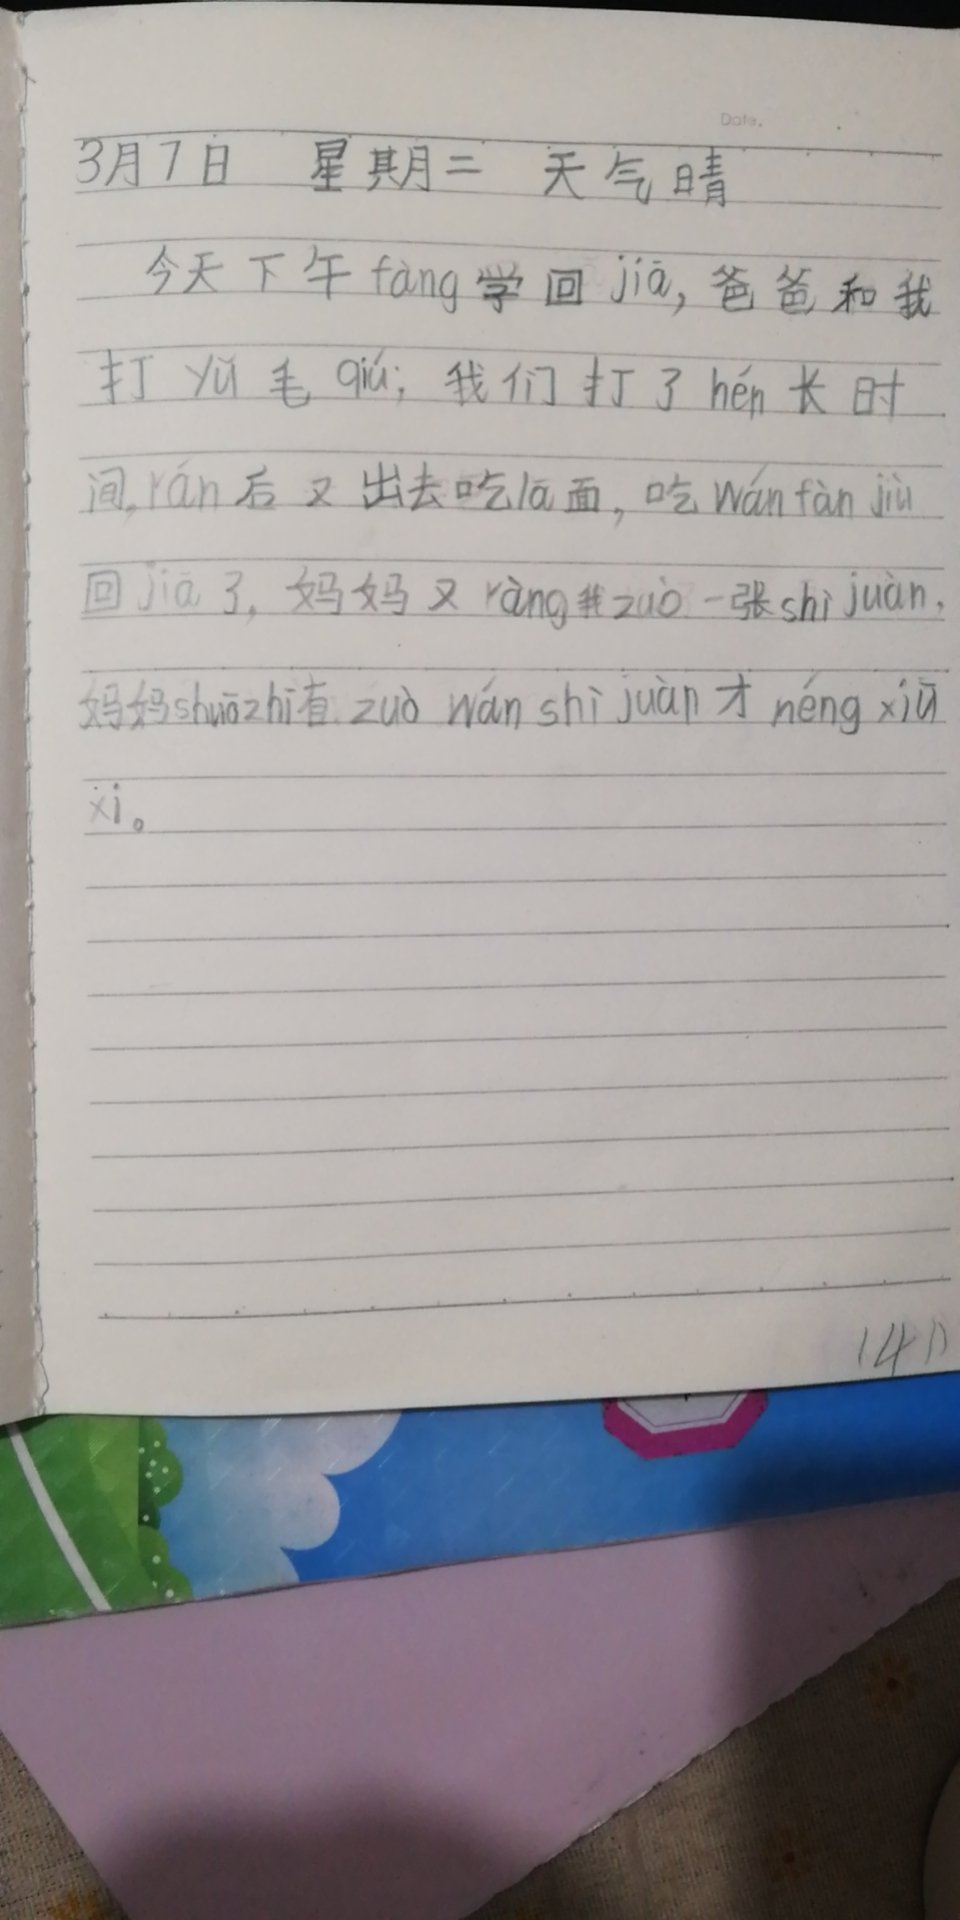 Date.
3月7日 星期二 天气晴
今天下午fàng学回jiā,爸爸和我
打yǔ毛qiú,我们打了hén长时
间,rán后又出去吃lā面,吃wán fàn jiù
回jiā了,妈妈又ràng我zuò一张shì juàn,
妈妈shuō zhǐ有zuò wán shì juàn才néng xiū
xi。